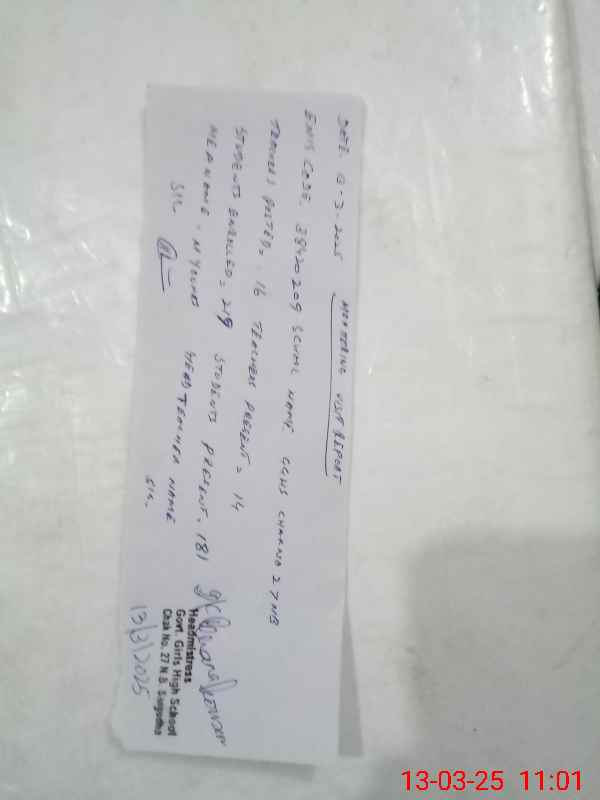 MONITORING VISIT REPORT
DATE. 13-3-2025
EMIS CODE. 38420209 SCHOOL NAME GGHS CHAK NO 27 NB
TEACHERS POSTED = 16 TEACHERS PRESENT = 14
STUDENTS ENROLLED = 219 STUDENTS PRESENT = 181
MEA NAME - M YOUNAS HEAD TEACHER NAME
SIG. SIG.
Headmistress
Govt. Girls High School
Chak No. 27 N.B. Sargodha
13/3/2025
13-03-25 11:01